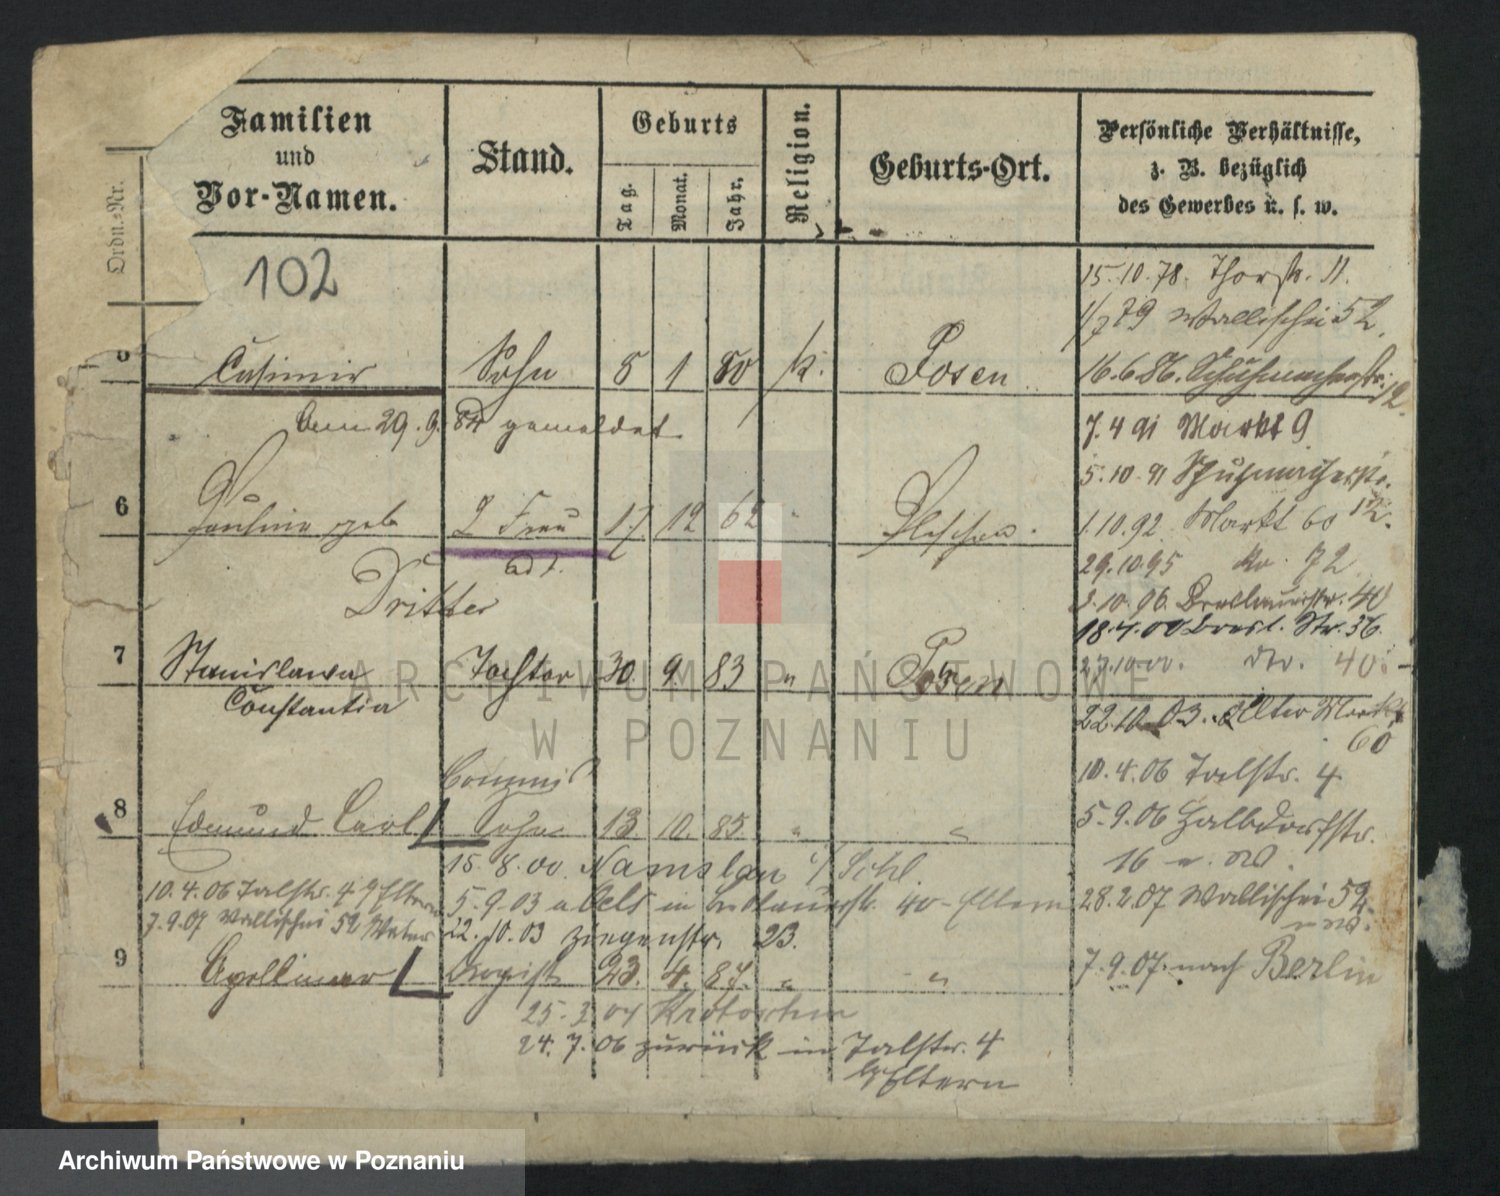 Ordn.-Nr.
Familien
und
Vor-Namen.
Stand.
Geburts
Tag.
Monat.
Jahr.
Religion.
Geburts-Ort.
Persönliche Verhältnisse,
z. B. bezüglich
des Gewerbes u. s. w.
102
15.10.78. Thorstr. 11.
1/7 79 Wallischei 52.
Casimir Sohn 5 1 80 k. Posen
16.6.86. Schuhmacherstr. 12.
29.9. 84 gemeldet
7.4 91 Markt 9
5.10.91 Schuhmacherstr. 12.
6 Pauline geb. 2 Frau 17 12 62 " Pleschen
1.10.92. Markt 60
Dritter
29.10.95 72
10.96. Breslauerstr. 40
18.4.00 Bresl. Str. 36.
7 Stanislawa Tochter 30. 9. 83 " Posen
Constantia
27.10.00. do. 40.
22.10.03. Alter Markt
60
Commis
10.4.06 Talstr. 4
8 Edmund Carl Sohn 13 10. 85. " "
5.9.06 Halbdorfstr.
16
15.8.00. Namslau i/Schl.
10.4.06 Talstr. 4 b/Eltern
5.9.03 a Oels in Breslauerstr. 40 - Eltern
28.2.07 Wallischei 52.
7.9.07 Wallischei 52 Vater
22.10.03 Ziegenstr. 23.
9 Apollinar Drogist 23. 4. 87. " "
7.9.07. nach Berlin
25.3.04 Krotoschin
24.7.06 zurück in Talstr. 4
b/Eltern
ARCHIWUM PAŃSTWOWE
W POZNANIU
Archiwum Państwowe w Poznaniu